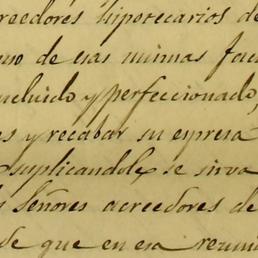 reedores hipotecarios de
uno de esas mismas fac
ncluido y perfeccionado,
es y recabar su espresa
suplicandole se sirva
s Señores acreedores de
de que en esa reuni